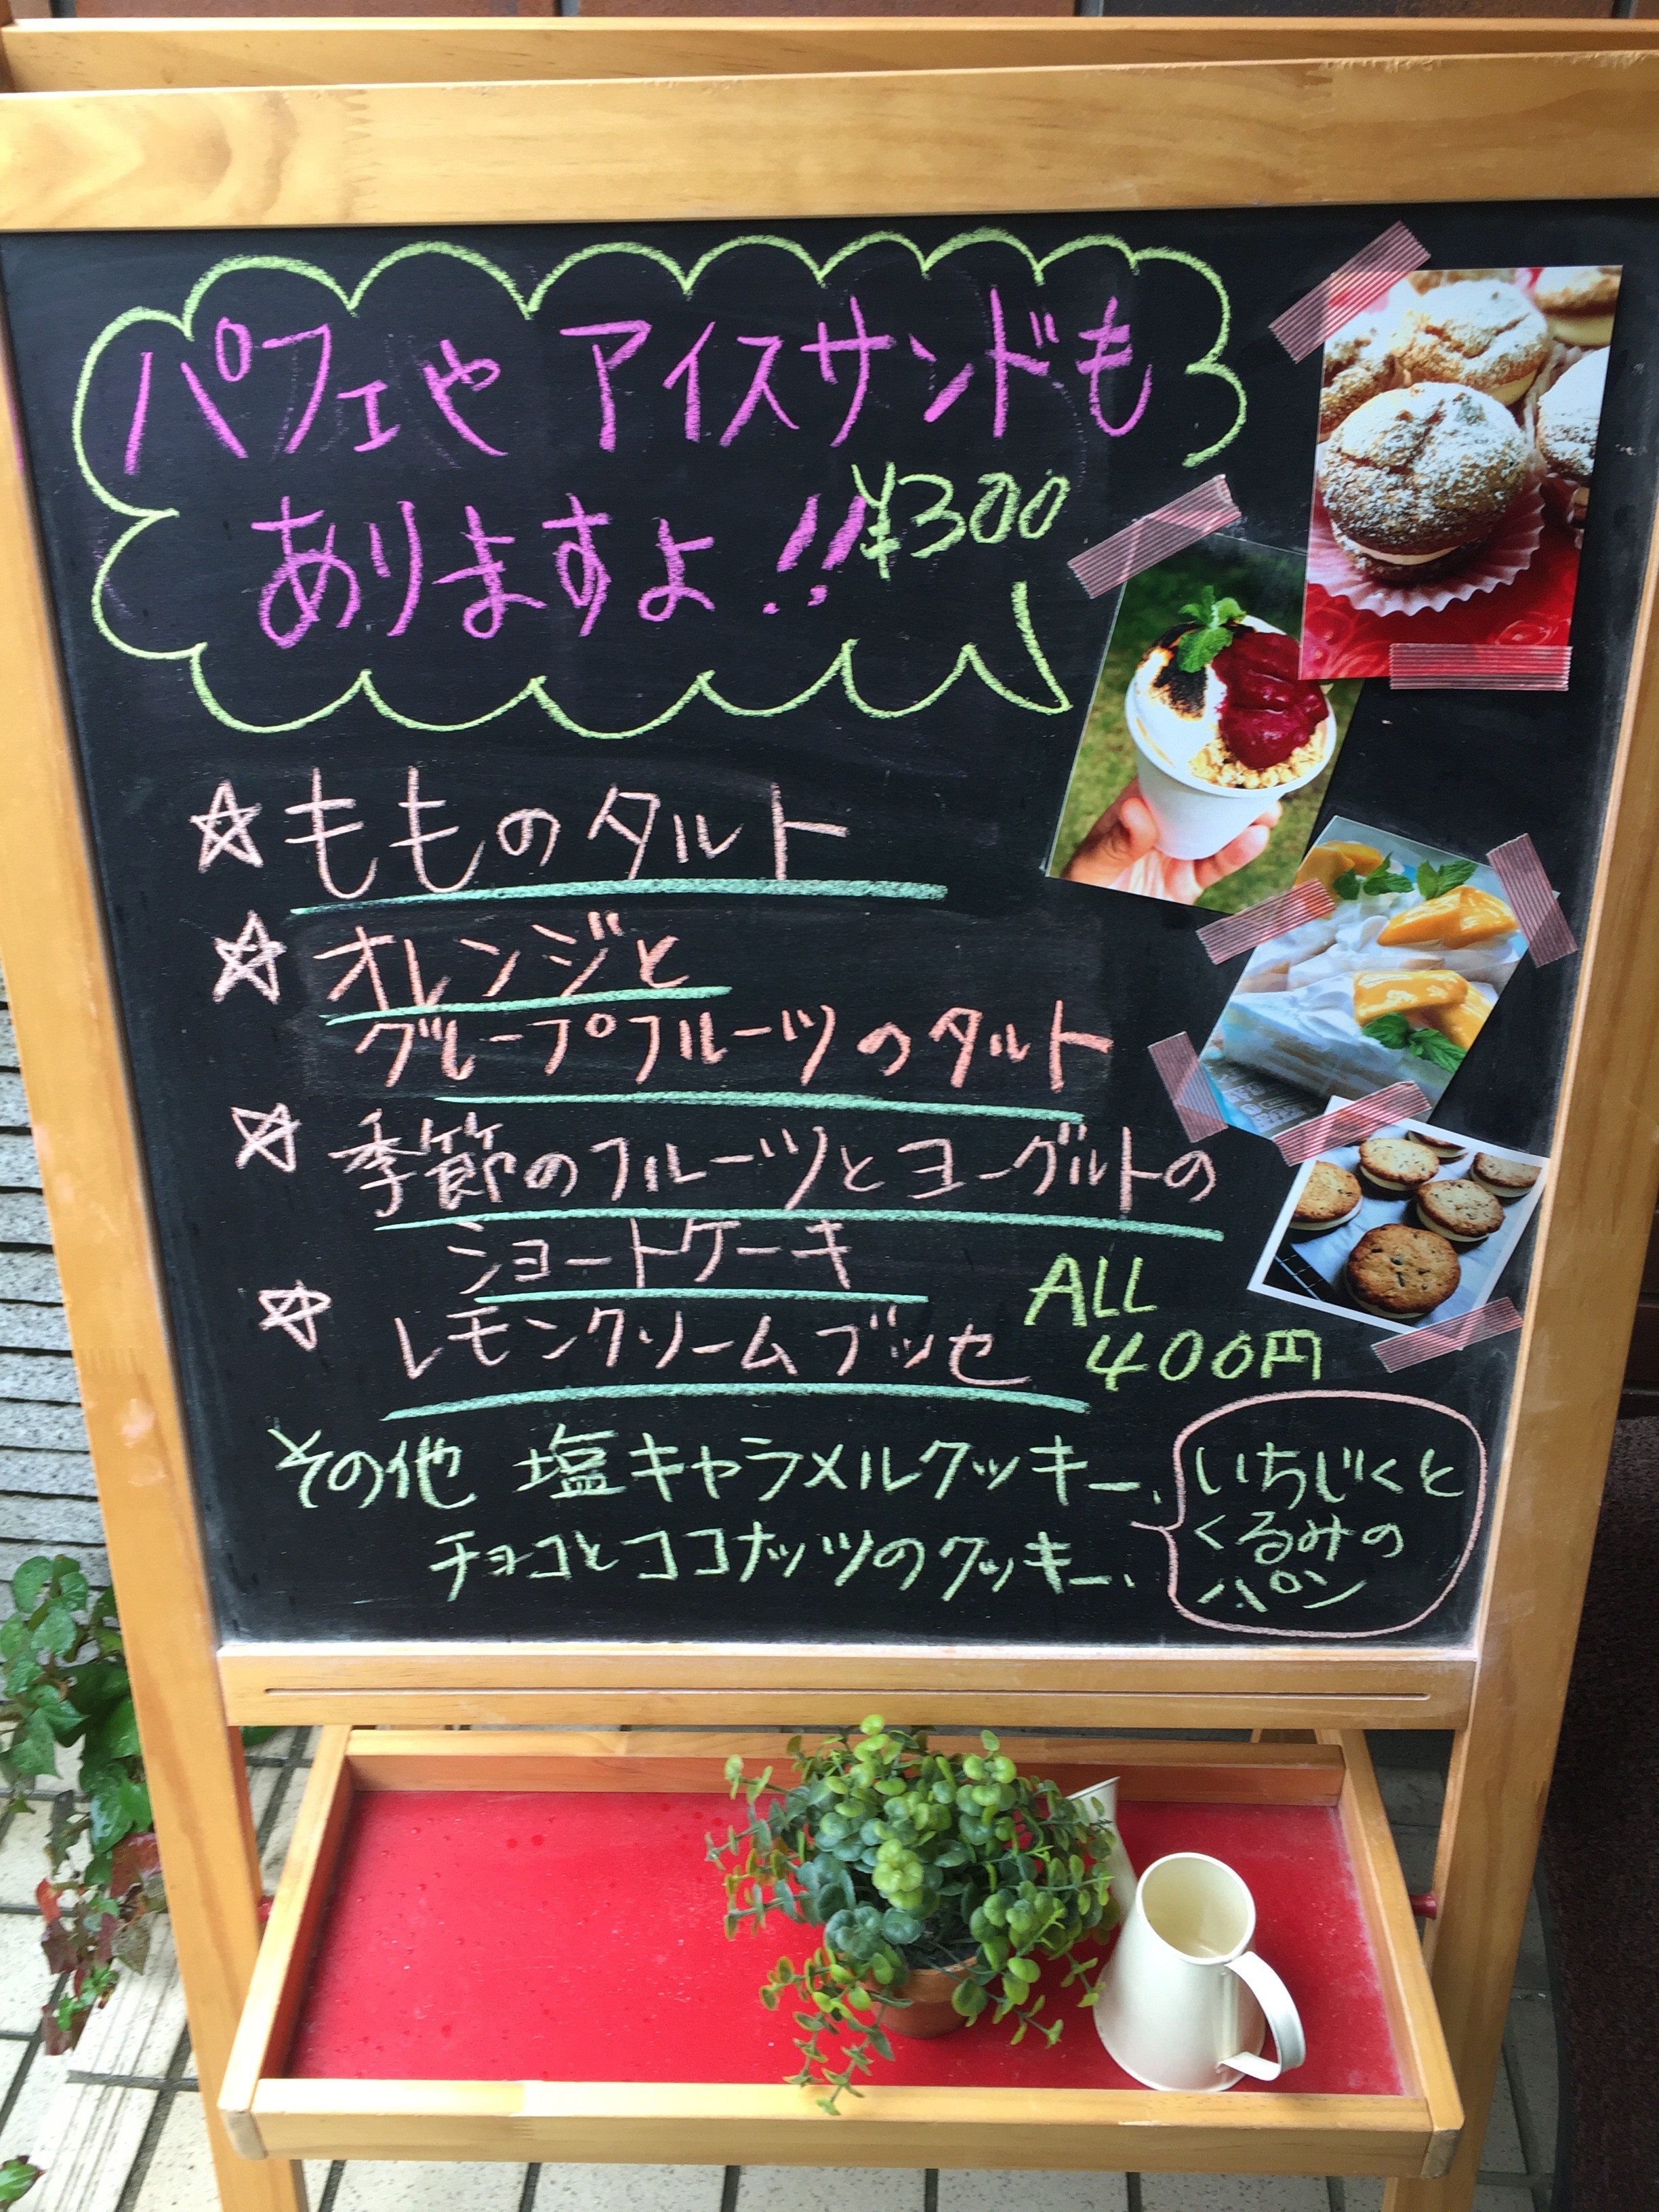 パフェや アイスサンドも
ありますよ!! ¥300
☆ もものタルト
☆ オレンジと
グレープフルーツのタルト
☆ 季節のフルーツとヨーグルトの
ショートケーキ
☆ レモンクリームブッセ
ALL
400円
その他 塩キャラメルクッキー、
チョコとココナッツのクッキー、
いちじくと
くるみの
パン